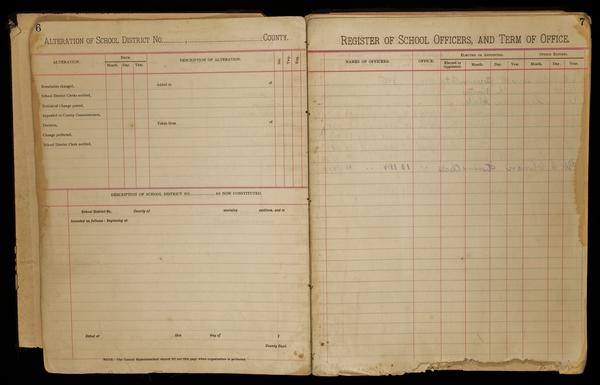 6
ALTERATION OF SCHOOL DISTRICT No. COUNTY.
ALTERATION.
DATE.
Month. Day. Year.
DESCRIPTION OF ALTERATION.
Sec. Twp. Rng.
Boundaries changed,
Added to of
School District Clerks notified,
Notices of Change posted,
Appealed to County Commissioners,
Decision,
Taken from of
Change perfected,
School District Clerk notified,
DESCRIPTION OF SCHOOL DISTRICT NO. AS NOW CONSTITUTED.
School District No. County of containing sections, and is
bounded as follows: Beginning at
Dated at this day of 1
County Supt.
NOTE.—The County Superintendent should fill out this page when organization is perfected.
7
REGISTER OF SCHOOL OFFICERS, AND TERM OF OFFICE.
NAMES OF OFFICERS.
OFFICE.
ELECTED OR APPOINTED.
OFFICE EXPIRES.
Elected or Appointed. Month. Day. Year. Month. Day. Year.